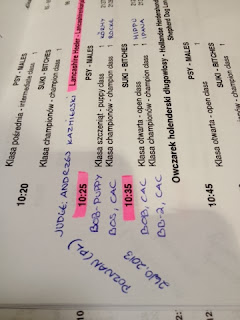 10:20
PSY - MALES
Klasa pośrednia - intermediate class 1
SUKI - BITCHES
Klasa championów - champion class 1
JUDGE: ANDRZEJ KAŹMIERSKI
Lancashire Heeler - Lancashire
10:25
PSY - MALES
BOB-PUPPY Klasa szczeniąt - puppy class 1
BOS, CAC Klasa championów - champion class 1
10:35
SUKI - BITCHES
BOB, CAC Klasa otwarta - open class 1
BB-2, CAC Klasa championów - champion class 1
Owczarek holenderski długowłosy - Hollandse Herdershond
Shepherd Dog
10:45
PSY - MALES
Klasa otwarta - open class 1
SUKI - BITCHES
POZNAŃ (PL)
2013